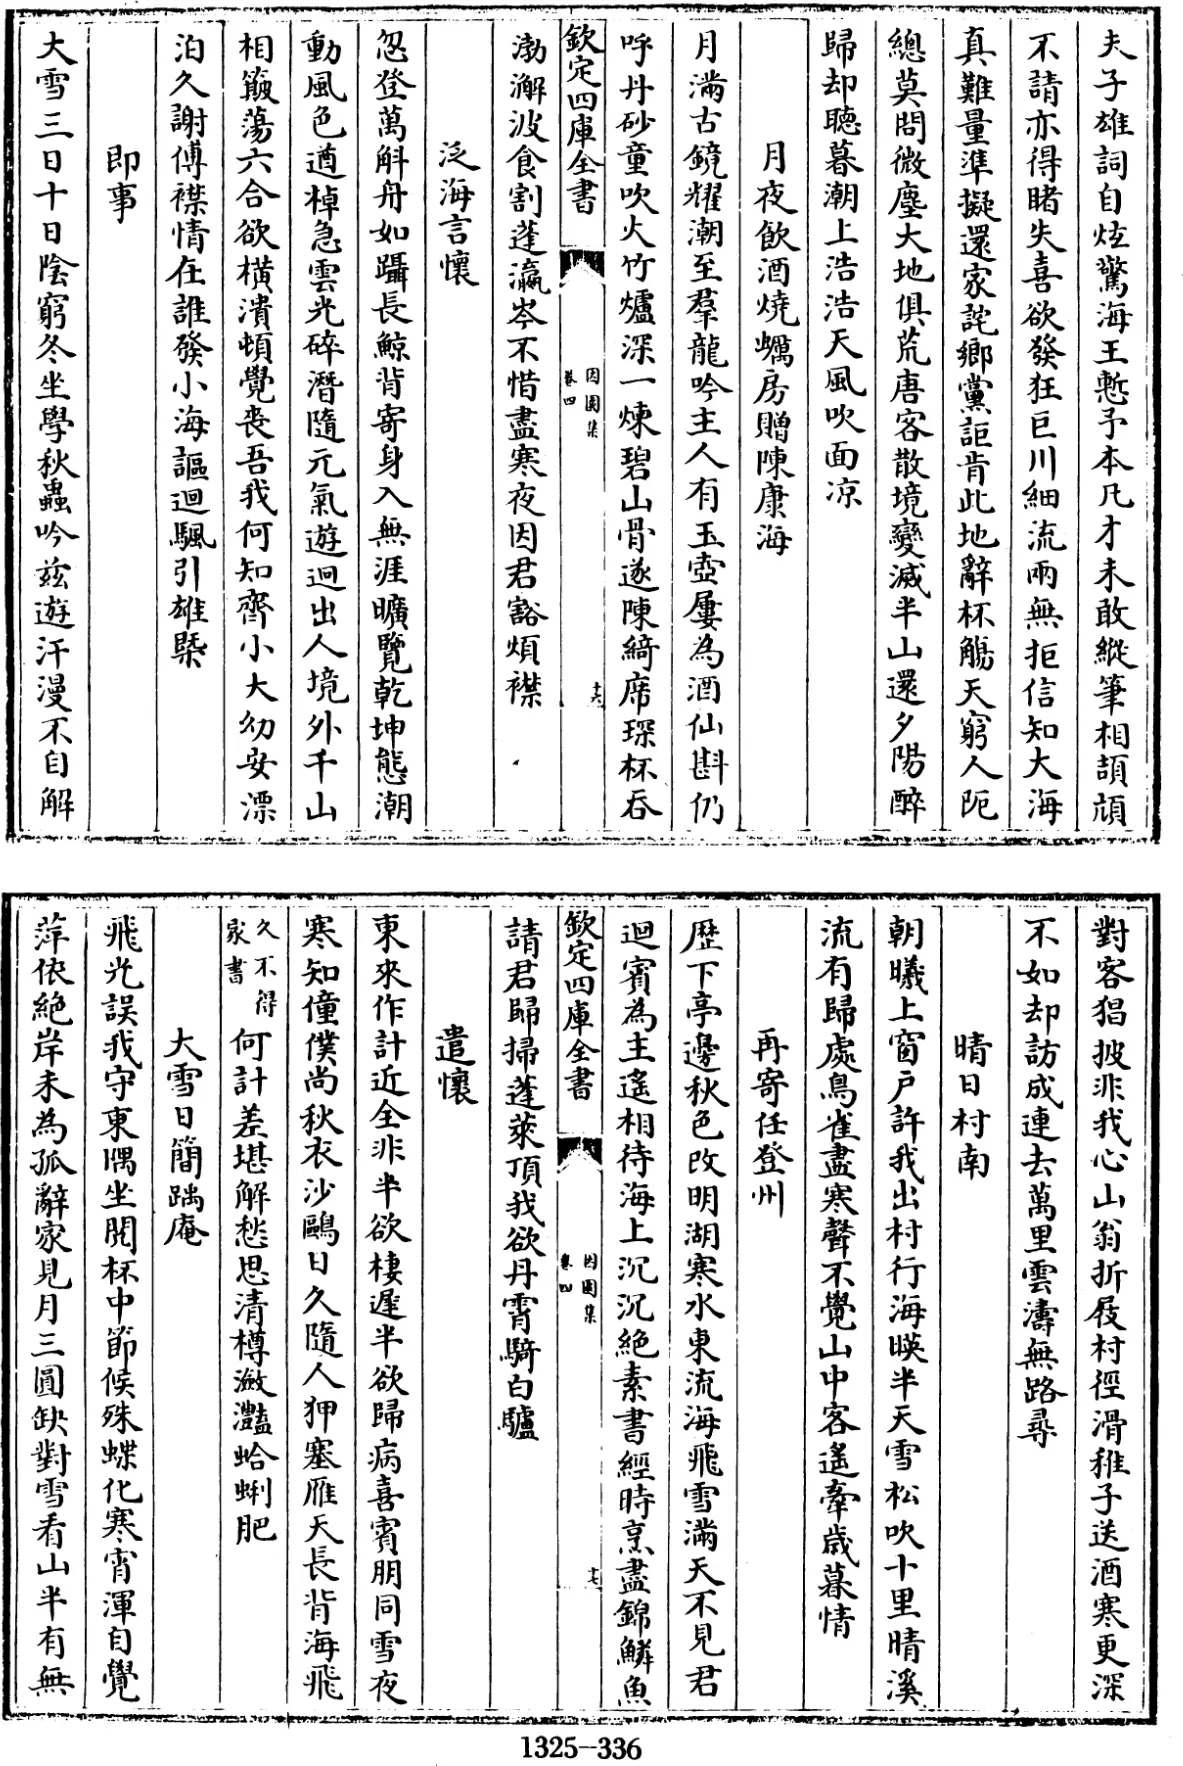 夫子雄詞自炫驚海王慙予本凡才未敢縱筆相頡頏
不請亦得睹失喜欲發狂巨川細流兩無拒信知大海
真難量準擬還家詫鄉黨詎肯此地辭杯觴天窮人阨
總莫問微塵大地俱荒唐客散境變滅半山還夕陽醉
歸却聽暮潮上浩浩天風吹面凉
月夜飲酒燒蠣房贈陳康海
月滿古鏡耀潮至羣龍吟主人有玉壺屢為酒仙斟仍
呼丹砂童吹火竹爐深一煉碧山骨遂陳綺席琛杯吞
欽定四庫全書
因園集
卷四
十六
渤澥波食割蓬瀛岑不惜盡寒夜因君豁煩襟
泛海言懷
忽登萬斛舟如躡長鯨背寄身入無涯曠覽乾坤態潮
動風色遒棹急雲光碎潛隨元氣遊迥出人境外千山
相簸蕩六合欲橫潰頓覺喪吾我何知齊小大幼安漂
泊久謝傅襟情在誰發小海謳迴颿引雄槩
即事
大雪三日十日陰窮冬坐學秋蟲吟茲遊汗漫不自解
對客猖披非我心山翁折屐村徑滑稚子送酒寒更深
不如却訪成連去萬里雲濤無路尋
晴日村南
朝曦上窗戶許我出村行海暎半天雪松吹十里晴溪
流有歸處鳥雀盡寒聲不覺山中客遙牽歲暮情
再寄任登州
歷下亭邊秋色改明湖寒水東流海飛雪滿天不見君
迴賓為主遙相待海上沉沉絶素書經時烹盡錦鱗魚
欽定四庫全書
因園集
卷四
十七
請君歸掃蓬萊頂我欲丹霄騎白驢
遣懷
東來作計近全非半欲棲遲半欲歸病喜賓朋同雪夜
寒知僮僕尚秋衣沙鷗日久隨人狎塞雁天長背海飛
久不得
家書
何計差堪解愁思清樽瀲灩蛤蜊肥
大雪日簡踽庵
飛光誤我守東隅坐閱杯中節候殊蝶化寒宵渾自覺
萍依絶岸未為孤辭家見月三圓缺對雪看山半有無
1325-336